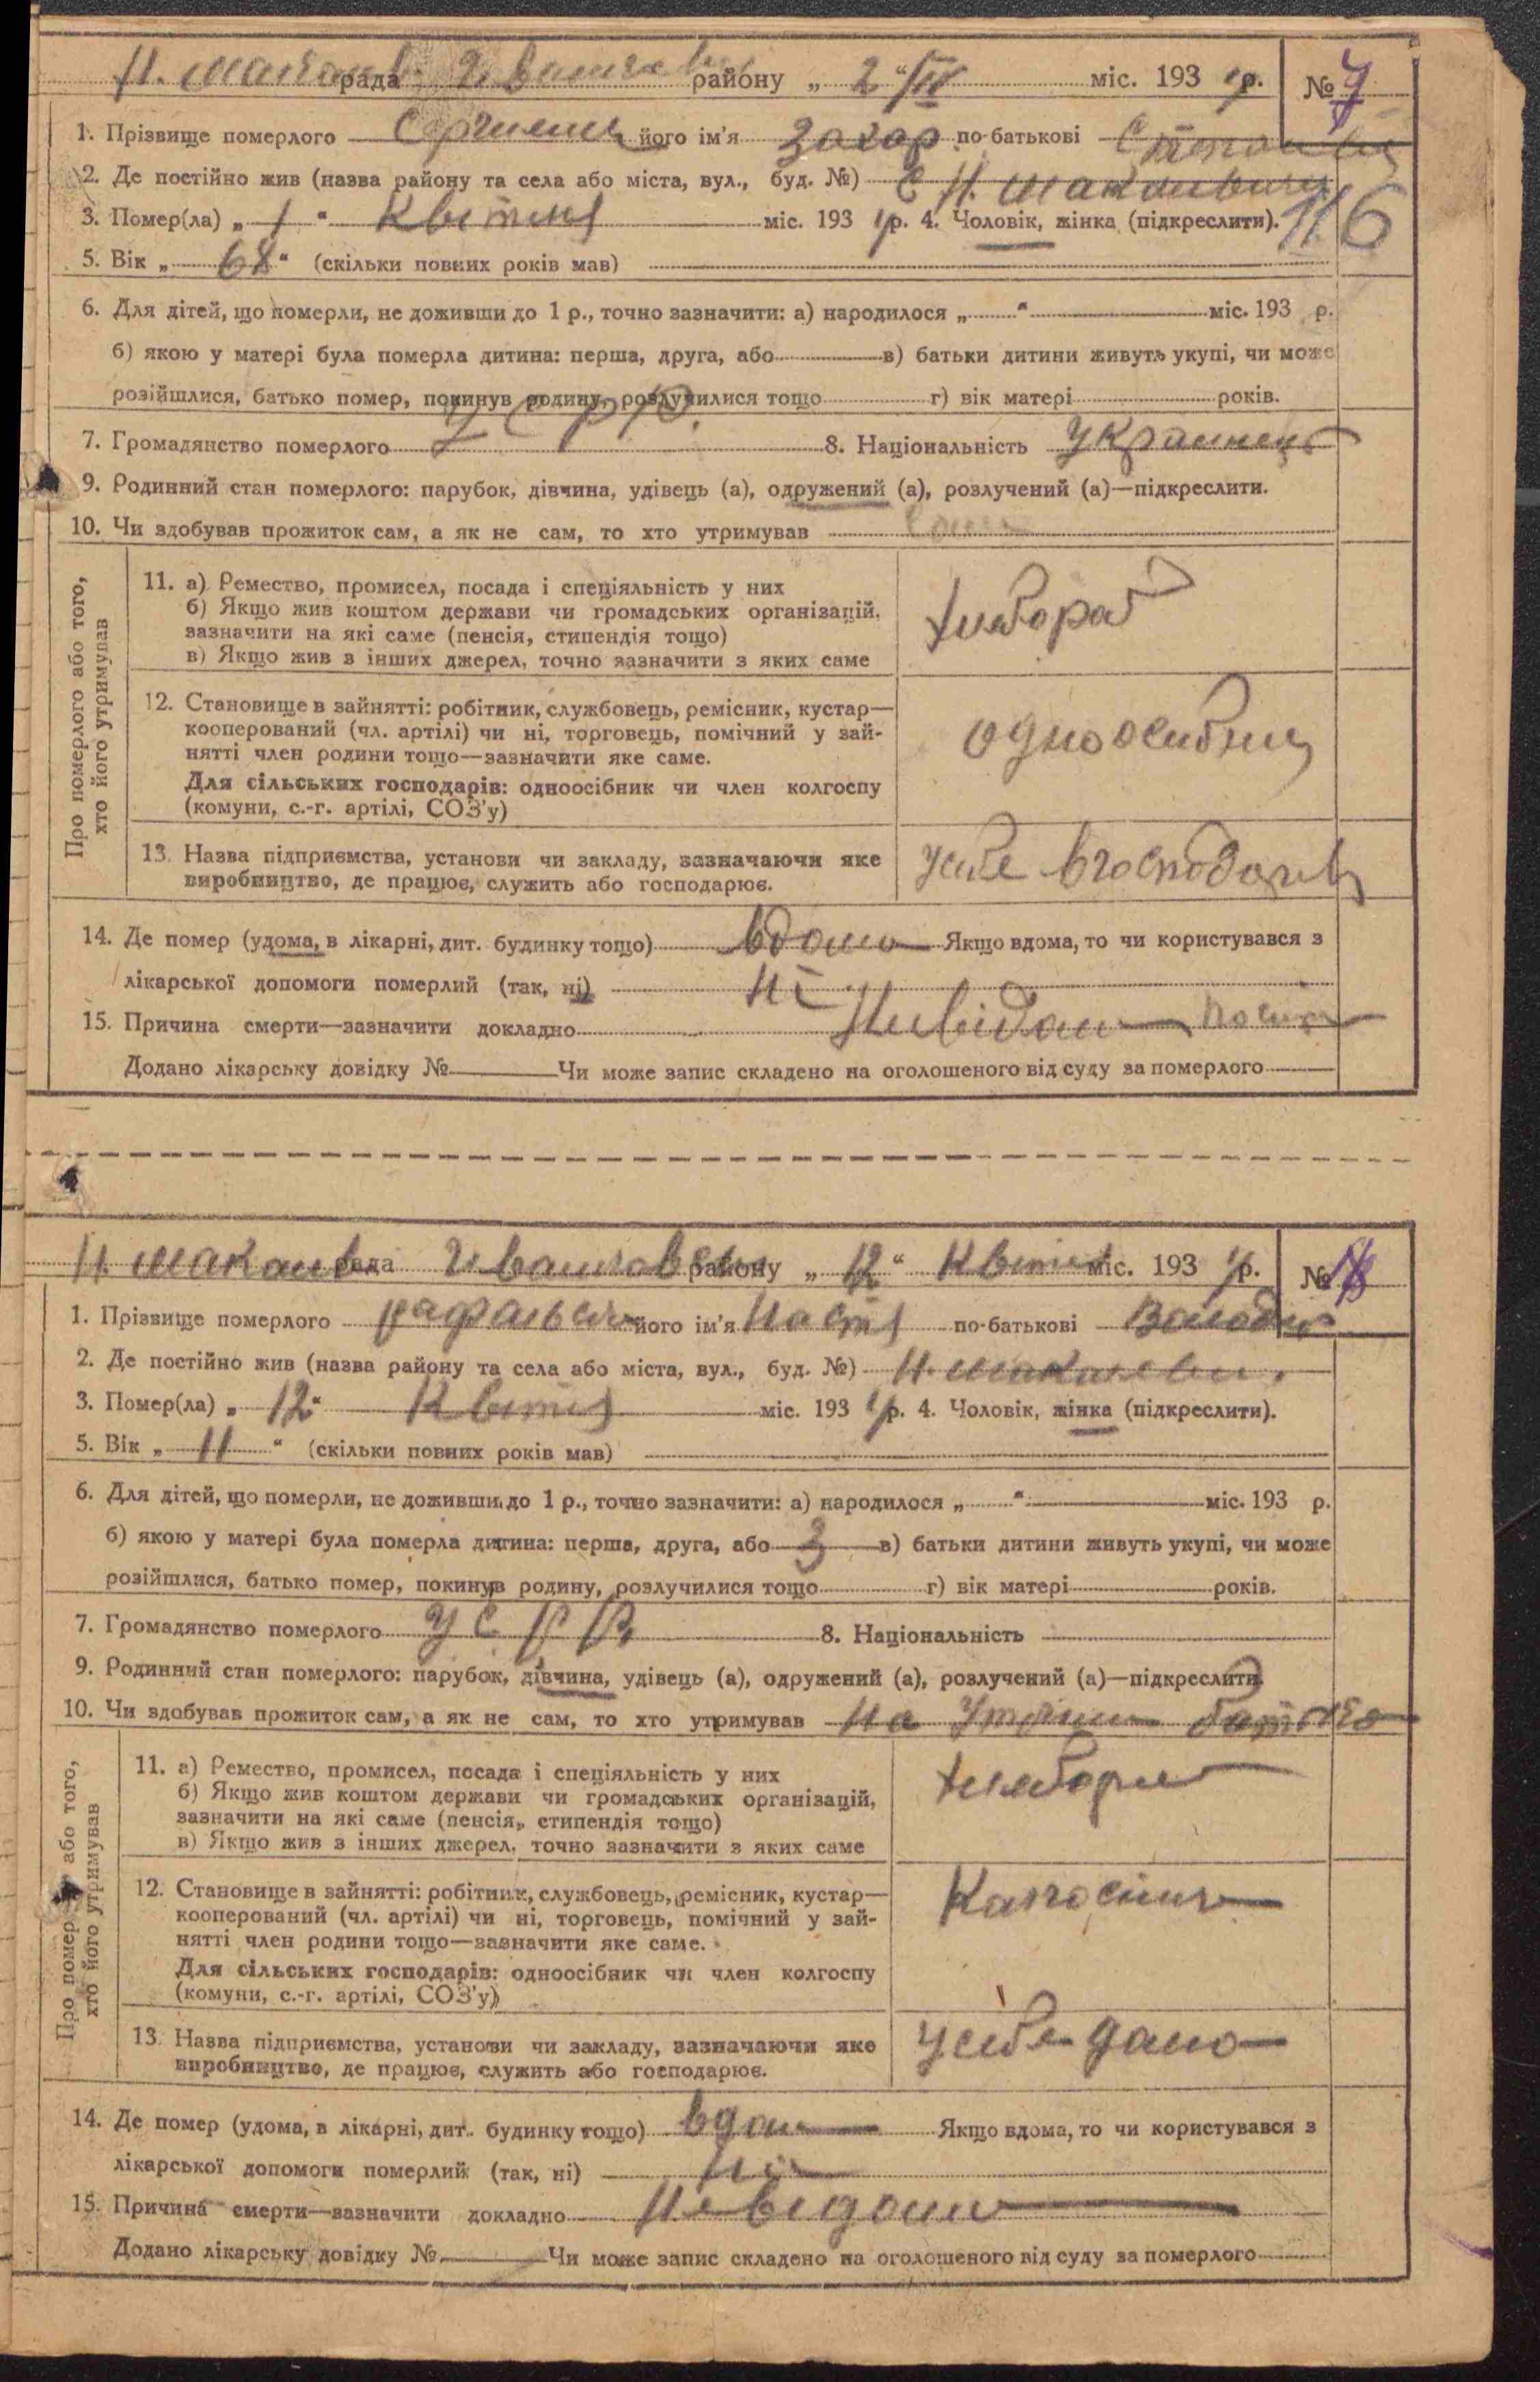 рада району „ 2 “ IV міс. 193 р. № 7
1. Прізвище померлого його ім'я Захар по-батькові
2. Де постійно жив (назва району та села або міста, вул., буд. №) с Н.
3. Помер(ла) „ 1 “ Квітня міс. 193 р. 4. Чоловік, жінка (підкреслити). 116
5. Вік „ 68 “ (скільки повних років мав)
6. Для дітей, що померли, не доживши до 1 р., точно зазначити: а) народилося „ “ міс. 193 р.
б) якою у матері була померла дитина: перша, друга, або в) батьки дитини живуть укупі, чи може
розійшлися, батько помер, покинув родину, розлучилися тощо г) вік матері років.
7. Громадянство померлого 8. Національність Українець
9. Родинний стан померлого: парубок, дівчина, удівець (а), одружений (а), розлучений (а)—підкреслити.
10. Чи здобував прожиток сам, а як не сам, то хто утримував сам
Про померлого або того,
хто його утримував
11. а) Ремество, промисел, посада і спеціяльність у них
б) Якщо жив коштом держави чи громадських організацій,
зазначити на які саме (пенсія, стипендія тощо)
в) Якщо жив з інших джерел, точно зазначити з яких саме
12. Становище в зайнятті: робітник, службовець, ремісник, кустар—
кооперований (чл. артілі) чи ні, торговець, помічний у зай-
нятті член родини тощо—зазначити яке саме.
Для сільських господарів: одноосібник чи член колгоспу
(комуни, с.-г. артілі, СОЗ'у)
13. Назва підприємства, установи чи закладу, зазначаючи яке
виробництво, де працює, служить або господарює.
14. Де помер (удома, в лікарні, дит. будинку тощо) вдома Якщо вдома, то чи користувався з
лікарської допомоги померлий (так, ні) ні
15. Причина смерти—зазначити докладно
Додано лікарську довідку № Чи може запис складено на оголошеного від суду за померлого
рада району „ 12 “ Квітня міс. 193 р. №
1. Прізвище померлого його ім'я Настя по-батькові
2. Де постійно жив (назва району та села або міста, вул., буд. №) Н.
3. Помер(ла) „ 12 “ Квітня міс. 193 р. 4. Чоловік, жінка (підкреслити).
5. Вік „ 11 “ (скільки повних років мав)
6. Для дітей, що померли, не доживши до 1 р., точно зазначити: а) народилося „ “ міс. 193 р.
б) якою у матері була померла дитина: перша, друга, або 3 в) батьки дитини живуть укупі, чи може
розійшлися, батько помер, покинув родину, розлучилися тощо г) вік матері років.
7. Громадянство померлого У С Р Р 8. Національність
9. Родинний стан померлого: парубок, дівчина, удівець (а), одружений (а), розлучений (а)—підкреслити.
10. Чи здобував прожиток сам, а як не сам, то хто утримував на
Про померлого або того,
хто його утримував
11. а) Ремество, промисел, посада і спеціяльність у них
б) Якщо жив коштом держави чи громадських організацій,
зазначити на які саме (пенсія, стипендія тощо)
в) Якщо жив з інших джерел, точно зазначити з яких саме
12. Становище в зайнятті: робітник, службовець, ремісник, кустар—
кооперований (чл. артілі) чи ні, торговець, помічний у зай-
нятті член родини тощо—зазначити яке саме.
Для сільських господарів: одноосібник чи член колгоспу
(комуни, с.-г. артілі, СОЗ'у)
13. Назва підприємства, установи чи закладу, зазначаючи яке
виробництво, де працює, служить або господарює.
14. Де помер (удома, в лікарні, дит. будинку тощо) вдома Якщо вдома, то чи користувався з
лікарської допомоги померлий (так, ні) ні
15. Причина смерти—зазначити докладно Невідома
Додано лікарську довідку № Чи може запис складено на оголошеного від суду за померлого